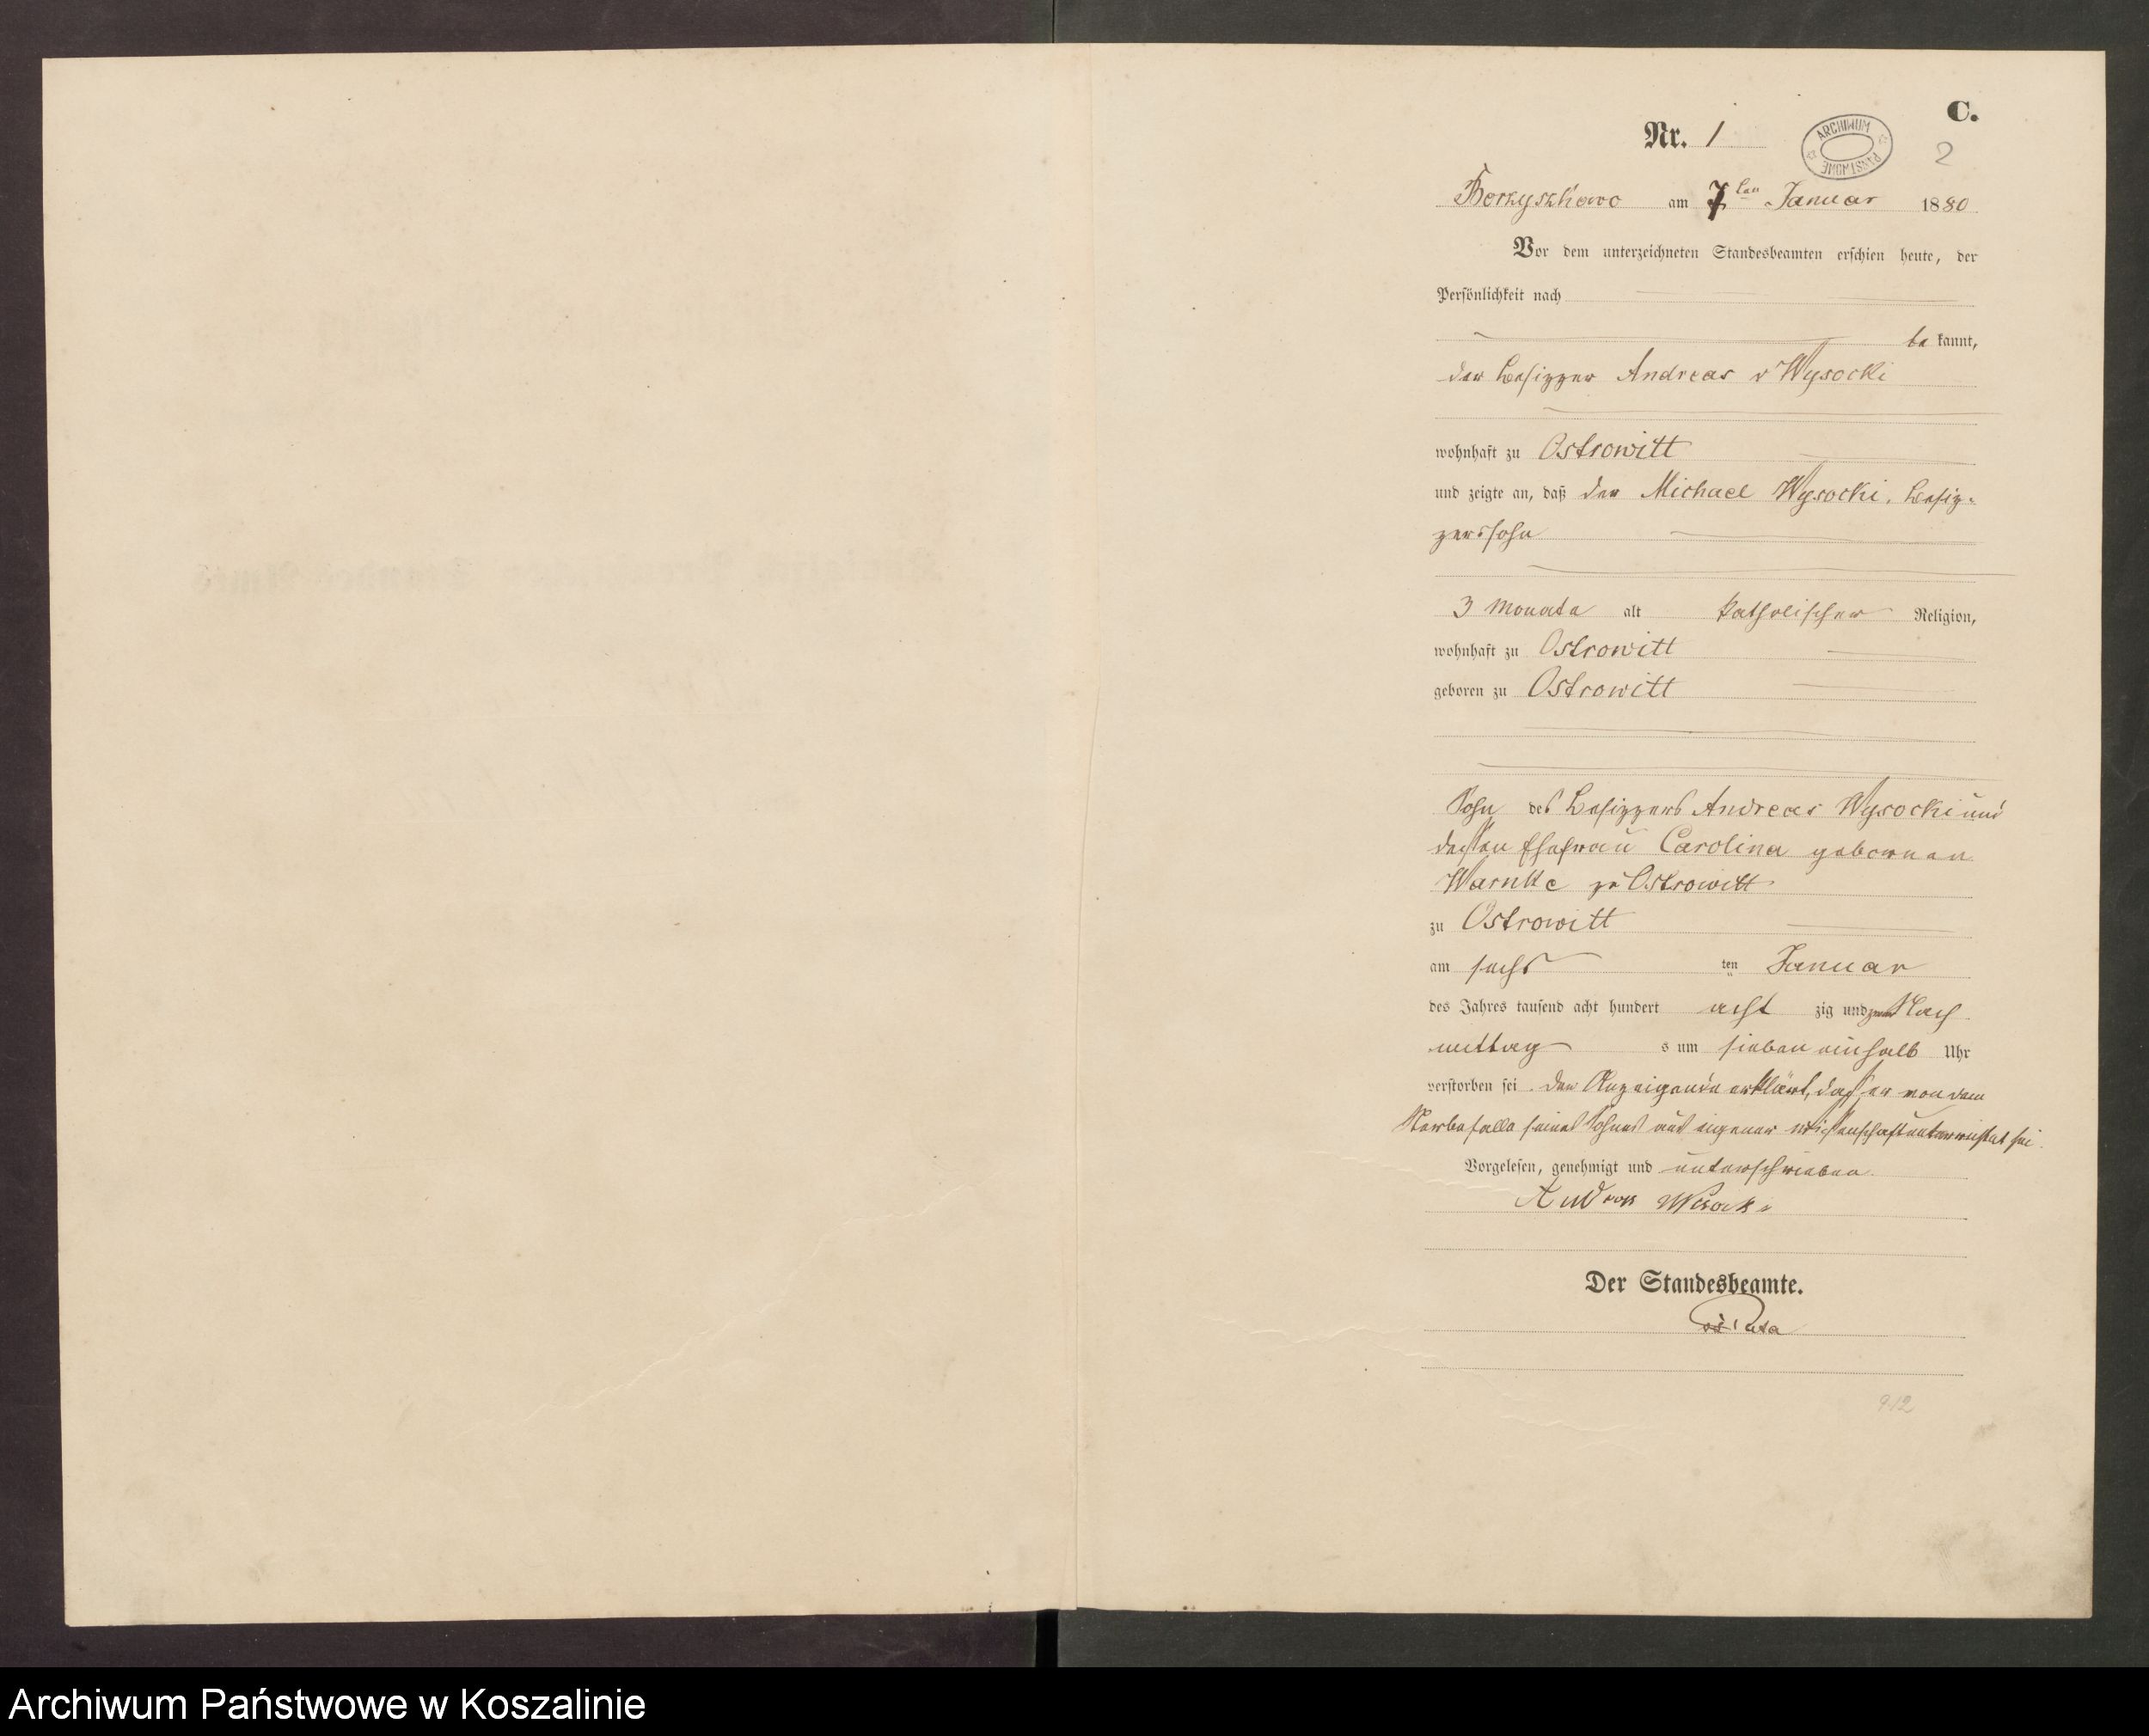 C.
Nr. 1
ARCHIWUM PAŃSTWOWE
2
Borzyszkowo am 7ten Januar 1880
Vor dem unterzeichneten Standesbeamten erschien heute, der
Persönlichkeit nach
be kannt,
der Besizzer Andreas v Wysocki
wohnhaft zu Ostrowitt
und zeigte an, daß der Michael Wysocki, Besiz-
zerssohn
3 Monate alt katholischer Religion,
wohnhaft zu Ostrowitt
geboren zu Ostrowitt
Sohn des Besizzers Andreas Wysocki und
dessen Ehefrau Carolina gebornen
Warnke zu Ostrowitt
zu Ostrowitt
am sechs ten Januar
des Jahres tausend acht hundert acht zig und Nach
mittag s um sieben einhalb Uhr
verstorben sei. Der Anzeigende erklärt, daß er von dem
Sterbefalle seines Sohnes aus eigener Wissenschaft unterrichtet sei.
Vorgelesen, genehmigt und unterschrieben
Andreas Wisocki
Der Standesbeamte.
912
Archiwum Państwowe w Koszalinie